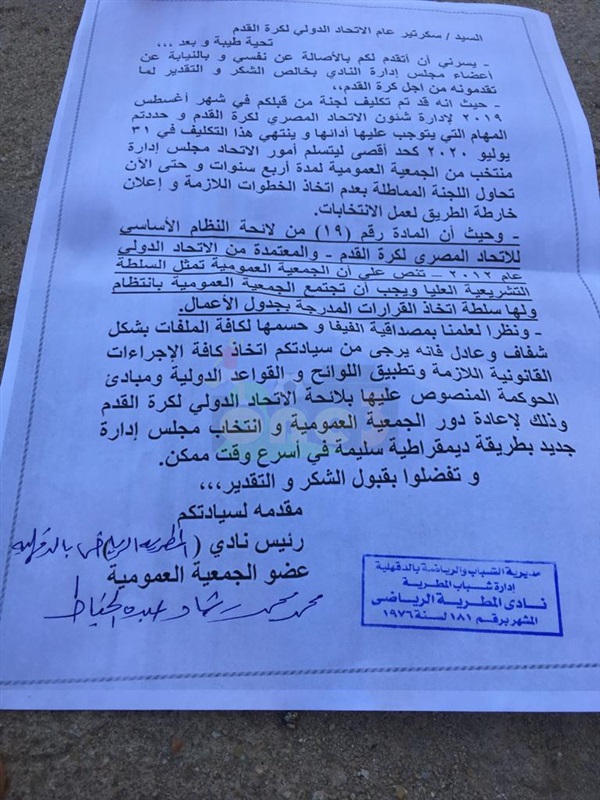 السيد / سكرتير عام الاتحاد الدولي لكرة القدم
تحية طيبة و بعد ,,,
- يسرني أن أتقدم لكم بالأصالة عن نفسي و بالنيابة عن
أعضاء مجلس إدارة النادي بخالص الشكر و التقدير لما
تقدمونه من اجل كرة القدم,,
- حيث انه قد تم تكليف لجنة من قبلكم في شهر أغسطس
٢٠١٩ لإدارة شئون الاتحاد المصري لكرة القدم و حددتم
المهام التي يتوجب عليها أدائها و ينتهي هذا التكليف في ٣١
يوليو ٢٠٢٠ كحد أقصى ليتسلم أمور الاتحاد مجلس إدارة
منتخب من الجمعية العمومية لمدة أربع سنوات و حتى الآن
تحاول اللجنة المماطلة بعدم اتخاذ الخطوات اللازمة و إعلان
خارطة الطريق لعمل الانتخابات.
- وحيث أن المادة رقم (١٩) من لائحة النظام الأساسي
للاتحاد المصري لكرة القدم - والمعتمدة من الاتحاد الدولي
عام ٢٠١٢ - تنص على أن الجمعية العمومية تمثل السلطة
التشريعية العليا ويجب أن تجتمع الجمعية العمومية بانتظام
ولها سلطة اتخاذ القرارات المدرجة بجدول الأعمال.
- ونظرا لعلمنا بمصداقية الفيفا و حسمها لكافة الملفات بشكل
شفاف وعادل فانه يرجى من سيادتكم اتخاذ كافة الإجراءات
القانونية اللازمة وتطبيق اللوائح و القواعد الدولية ومبادئ
الحوكمة المنصوص عليها بلائحة الاتحاد الدولي لكرة القدم
وذلك لإعادة دور الجمعية العمومية و انتخاب مجلس إدارة
جديد بطريقة ديمقراطية سليمة في أسرع وقت ممكن.
و تفضلوا بقبول الشكر و التقدير,,,
مقدمه لسيادتكم
رئيس نادي ( المطرية الرياضى بالدقهلية
عضو الجمعية العمومية
محمد محمد رشاد عبده الخياط
مديرية الشباب والرياضة بالدقهلية
إدارة شباب المطرية
نادى المطرية الرياضى
المشهر برقم ١٨١ لسنة ١٩٧٦